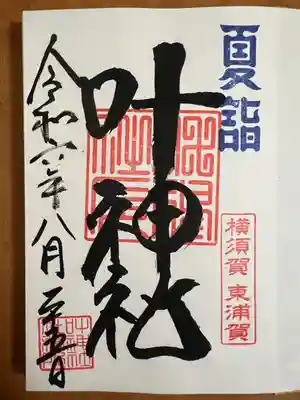 夏詣
横須賀 東浦賀
叶神社
令和六年八月二十五日